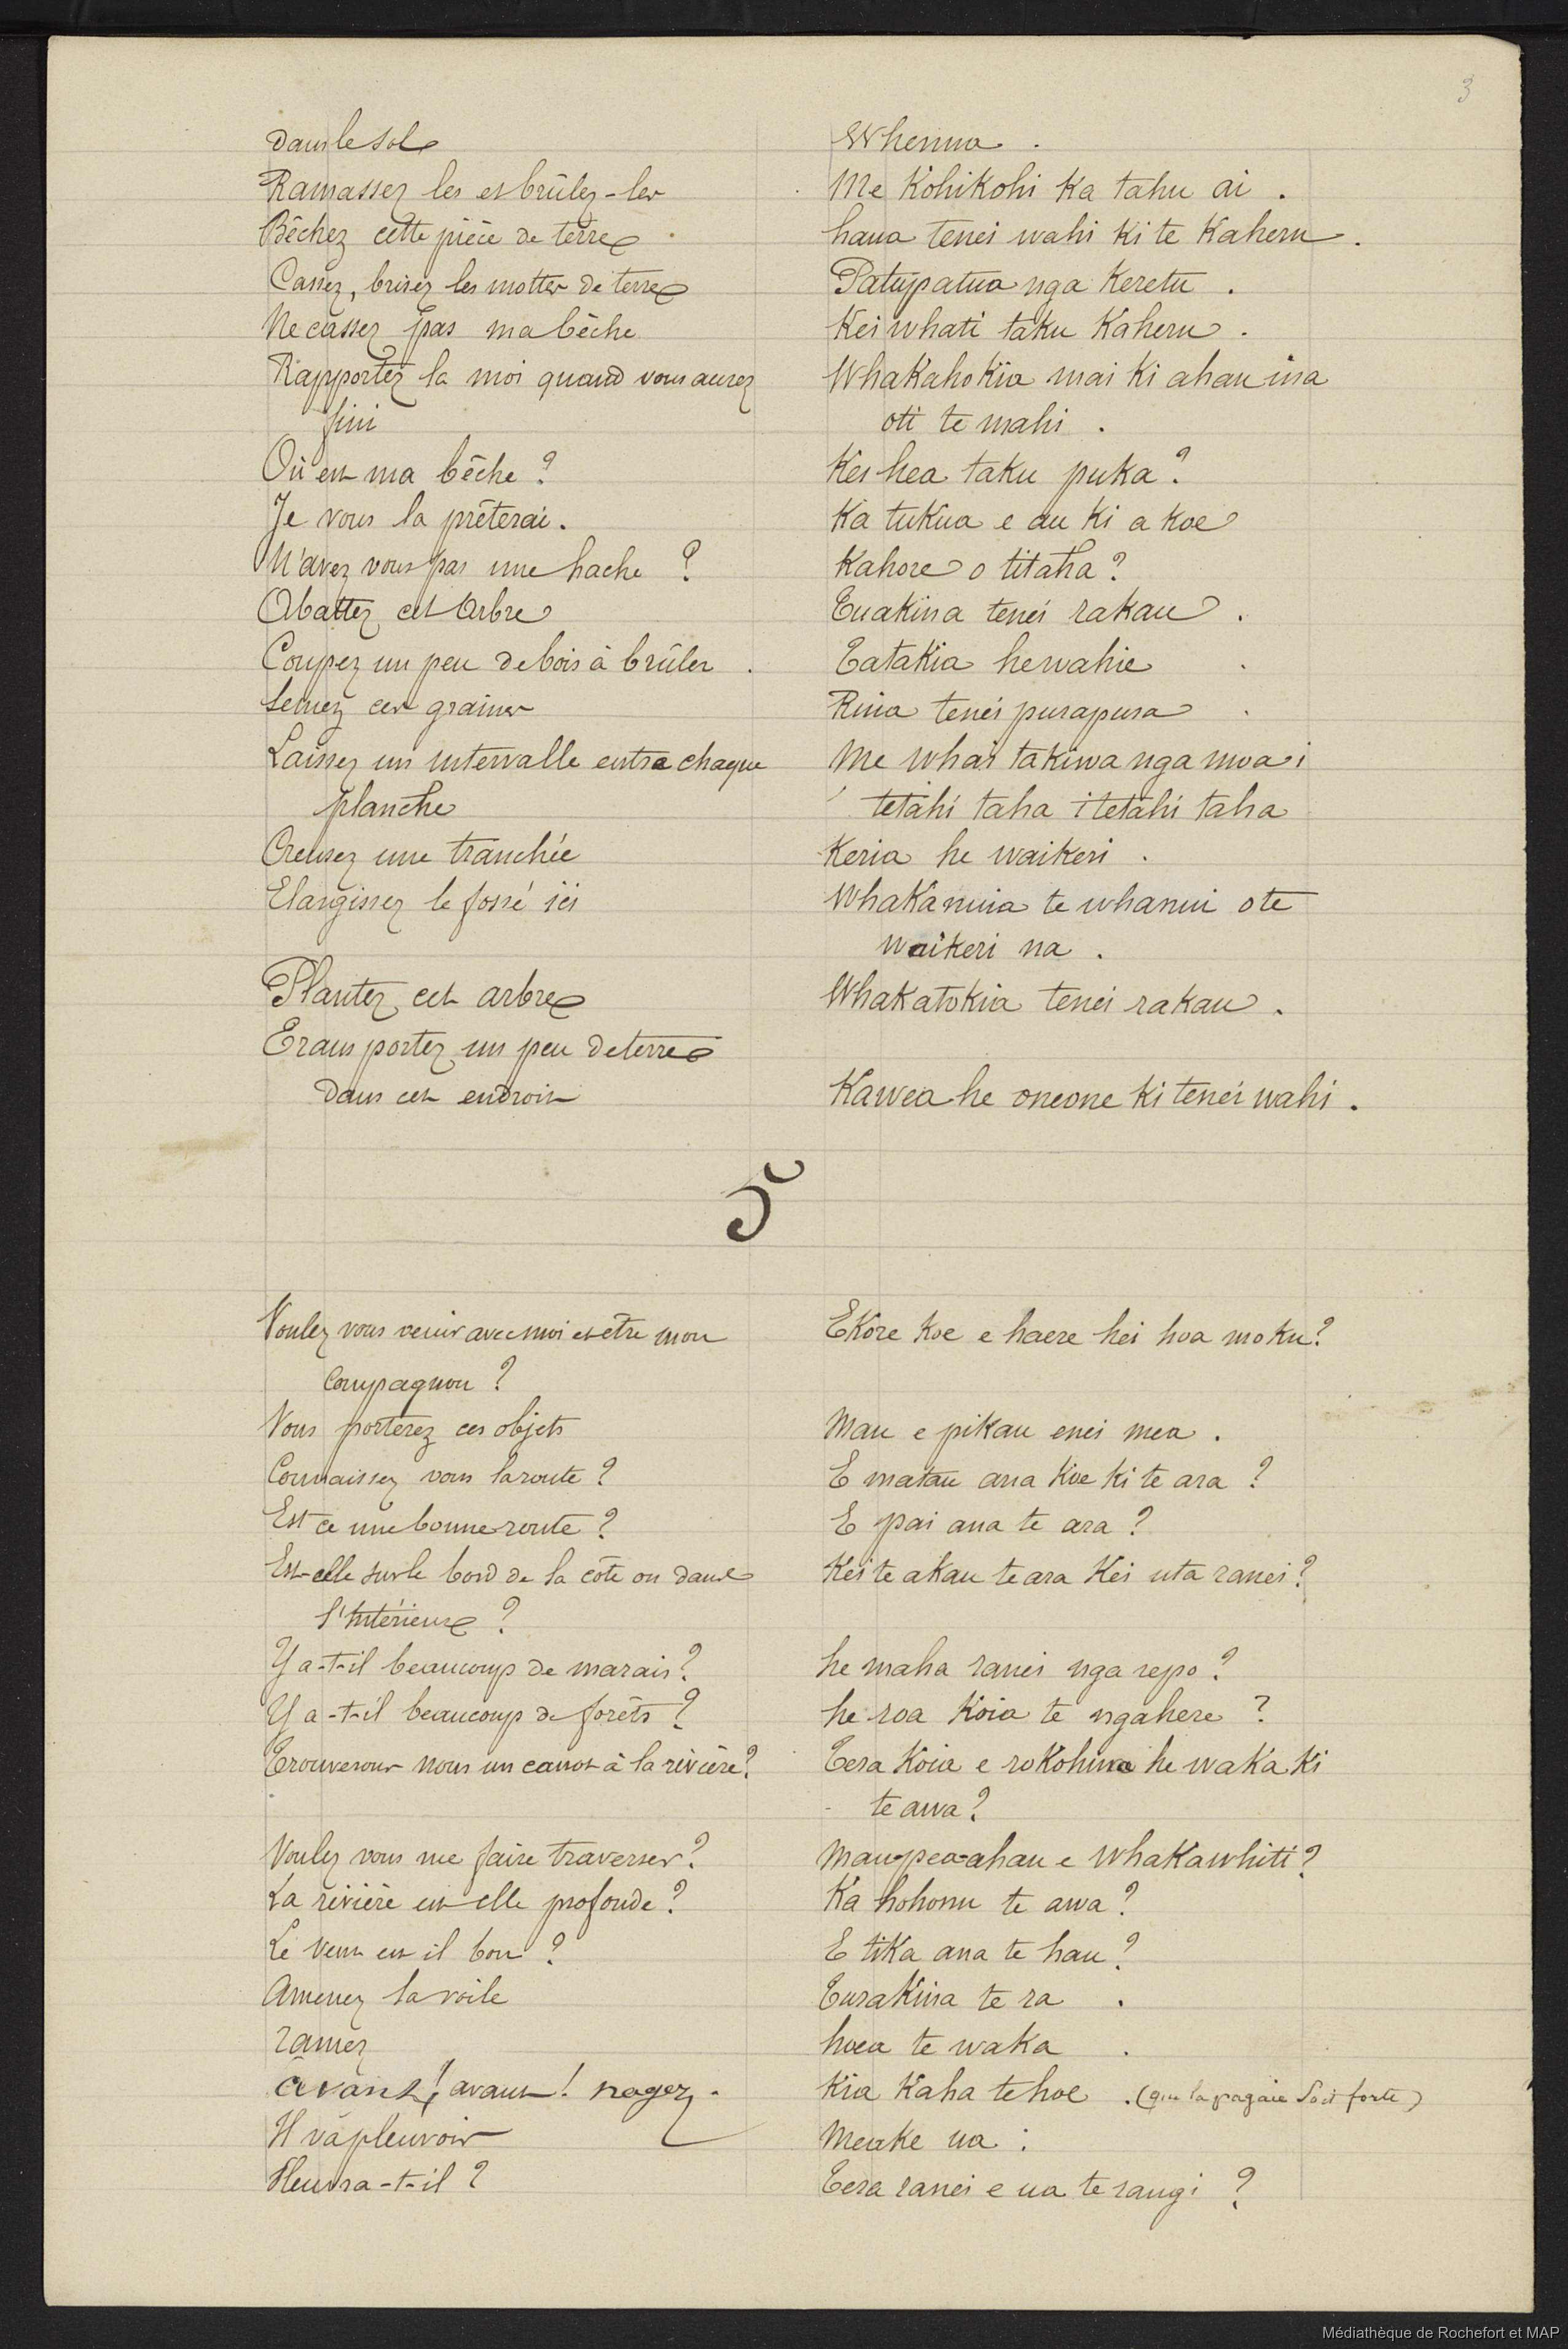 3
dans le sol Whenua.
Ramassez les et brûlez-les Me Kohikohi Ka tahu ai.
Bêchez cette pièce de terre haua tenei wahi Ki te Kaheru.
Cassez, brisez les mottes de terre Patupatua nga Keretu.
Ne cassez pas ma bêche Kei whati taku Kaheru.
Rapportez la moi quand vous aurez Whakahokia mai Ki ahau ina
fini oti te mahi.
Où est ma bêche? Kei hea taku puka?
Je vous la prêterai. Ka tukua e au Ki a Koe
N'avez vous pas une hache? Kahore o titaha?
Abattez cet arbre Tuakina tenei rakau.
Coupez un peu de bois à brûler. Tatakia he wahie.
Semez ces graines Ruia tenei purapura.
Laissez un intervalle entre chaque Me whai takiwa nga moa i
planche tetahi taha i tetahi taha
Creusez une tranchée Keria he waikeri.
Elargissez le fossé ici Whakanuia te whanui o te
waikeri na.
Plantez cet arbre Whakatokia tenei rakau.
Transportez un peu de terre
dans cet endroit Kawea he oneone Ki tenei wahi.
5
Voulez vous venir avec moi et être mon E Kore Koe e haere hei hoa moku?
compagnon?
Vous porterez ces objets Mau e pikau enei mea.
Connaissez vous la route? E matau ana Koe Ki te ara?
Est ce une bonne route? E pai ana te ara?
Est-elle sur le bord de la côte ou dans Kei te akau te ara Kei uta ranei?
l'intérieur?
Y a-t-il beaucoup de marais? he maha ranei nga repo?
Y a-t-il beaucoup de forêts? he roa Koia te ngahere?
Trouverons nous un canot à la rivière? Tera Koia e rokohina he waka Ki
te awa?
Voulez vous me faire traverser? Mau-pea-ahau e Whakawhiti?
La rivière est elle profonde? Ka hohonu te awa?
Le vent est il bon? E tika ana te hau?
Amenez la voile Turakina te ra.
ramez hoea te waka.
avant! avant! nagez. Kia Kaha te hoe. (que la pagaie soit forte)
Il va pleuvoir Meake ua:
Pleuvra-t-il? Tera ranei e ua te rangi?
Médiathèque de Rochefort et MAP